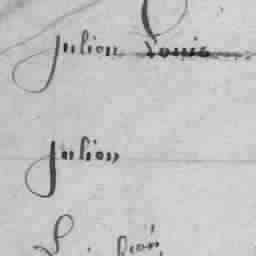 Julien Louis
Julien